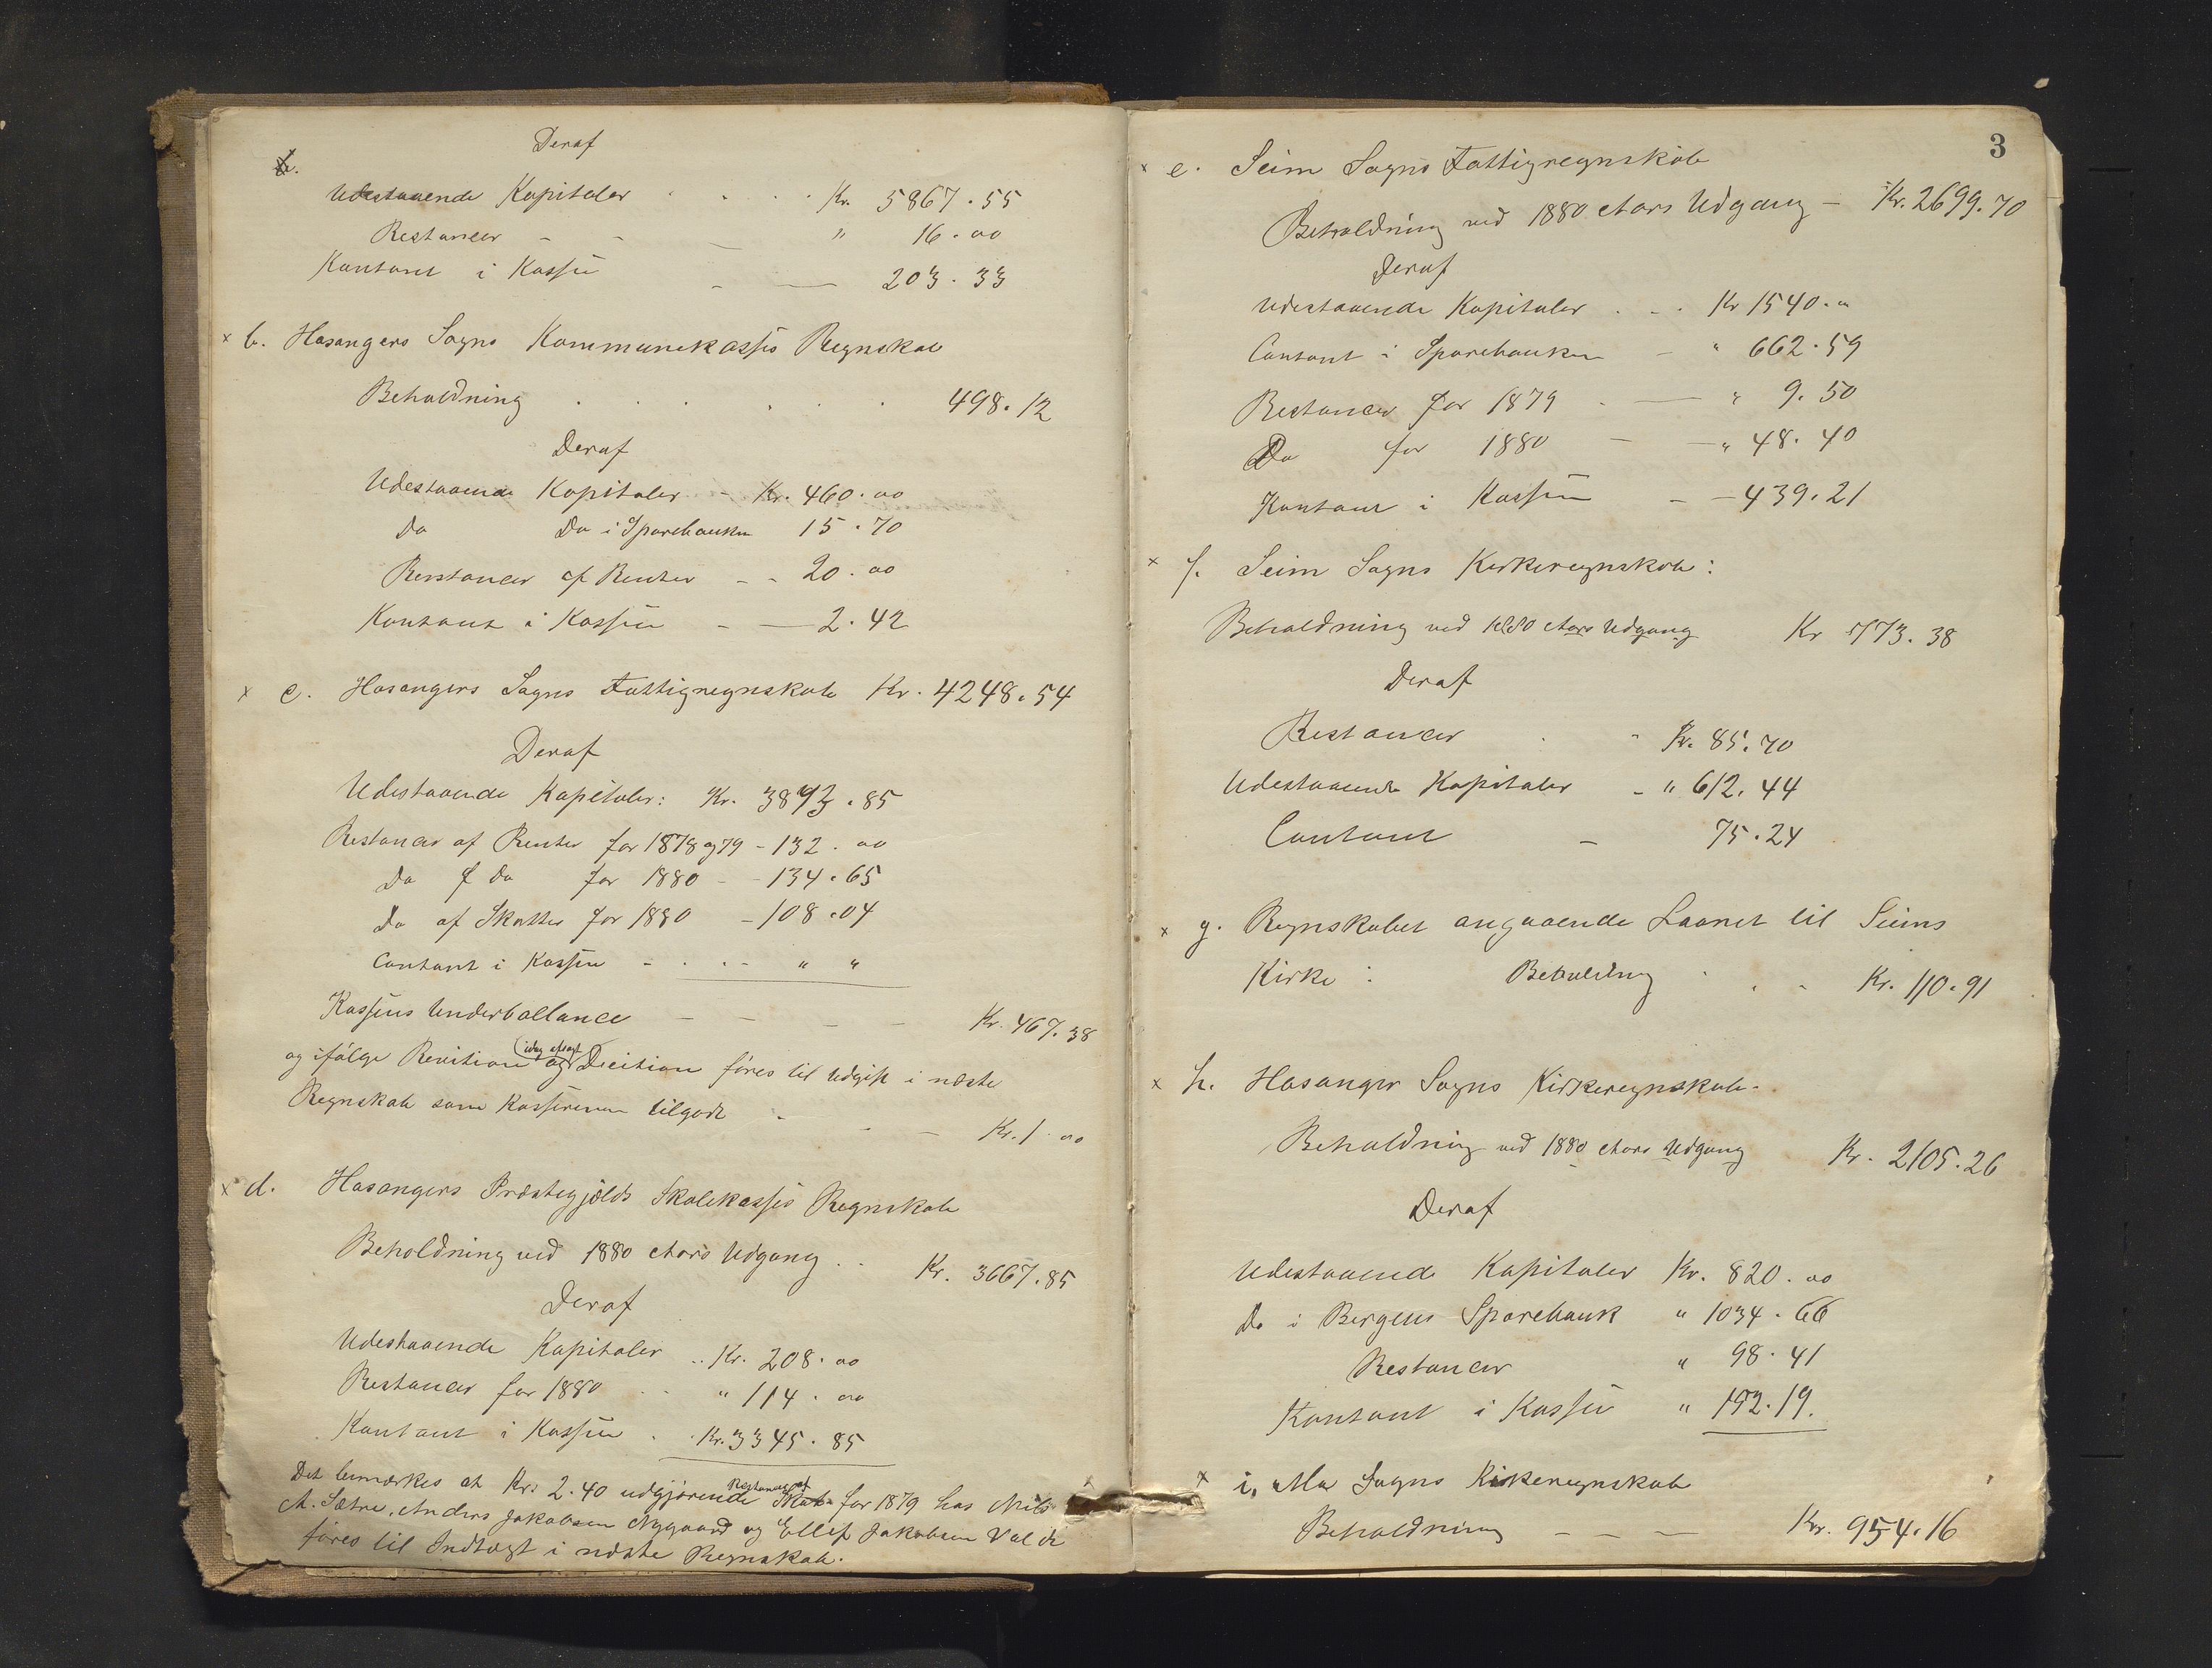 Deraf
Udestaaende Kapitaler . . . . Kr. 5867.55
Restancer - - - " 16.00
Kontant i Kassen - - 203.33
x b. Hosangers Sogns Kommunekasses Regnskab
Beholdning . . . . . . 498.12
Deraf
Udestaaende Kapitaler - Kr. 460.00
Do Do i Sparebanken 15.70
Restancer af Renter - - 20.00
Kontant i Kassen - - 2.42
x c. Hosangers Sogns Fattigregnskab Kr. 4248.54
Deraf
Udestaaende Kapitaler: Kr. 3873.85
Restancer af Renter for 1878 og 79 - 132.00
Do af do for 1880 - - 134.65
Do af Skatter for 1880 - 108.04
Contant i Kassen - . . - " "
Kassens Underballance - - - - Kr. 467.38
og ifølge Revition og (idag afsagt Decition føres til Udgift i næste
Regnskab som Kassereren tilgode - - - Kr. 1.00
x d. Hosangers Præstegjelds Skolekasses Regnskab
Beholdning ved 1880 Aars Udgang . . Kr. 3667.85
Deraf
Udestaaende Kapitaler .. Kr. 208.00
Restancer for 1880 . . " 114.00
Kontant i Kassen . . Kr. 3345.85
Det bemærkes at Kr. 2.40 udgjørende Restance af Skat for 1879 hos Nils
A. Sætre, Anders Jakobsen Nygaard og Ellef Jakobsen Valde
føres til Indtægt i næste Regnskab.
3
x e. Seim Sogns Fattigregnskab
Beholdning ved 1880 Aars Udgang - Kr. 2699.70
Deraf
Udestaaende Kapitaler . - . Kr 1540."
Contant i Sparebanken - " 662.59
Restancer for 1879 . - " 9.50
Do for 1880 - - " 48.40
Kontant i Kassen - - 439.21
x f. Seim Sogns Kirkeregnskab:
Beholdning ved 1880 Aars Udgang Kr 773.38
Deraf
Restancer . - Kr. 85.70
Udestaaende Kapitaler - " 612.44
Contant - 75.24
x g. Regnskabet angaaende Laanet til Seims
Kirke : Beholdning . . - Kr. 110.91
x h. Hosanger Sogns Kirkeregnskab.
Beholdning ved 1880 Aars Udgang Kr. 2105.26
Deraf
Udestaaende Kapitaler Kr. 820.00
Do i Bergens Sparebank " 1034.66
Restancer " 98.41
Kontant i Kassen " 152.19.
x i, Mo Sogns Kirkeregnskab
Beholdning - - - Kr. 954.16